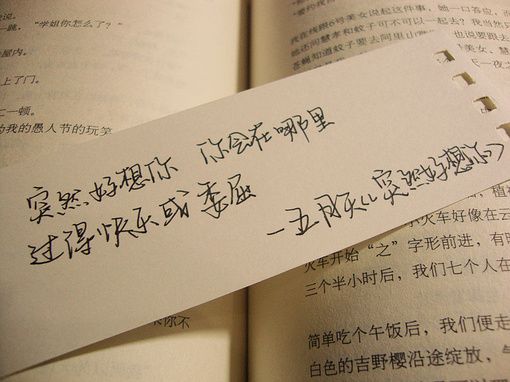 "学姐你怎么了？"
屋内。
上了门。
一顿。
的我的愚人节的玩笑
突然好想你 你会在哪里
过得快乐或委屈
—五月天《突然好想你》
你不
美女说起这件事，她一口答应，而
蚊子可不可以一起去？我当然
蚊子要去阿里山
火车好像在云
火车开始"之"字形前进，有时
三个半小时后，我们七个人在
简单吃个午饭后，我们便走
白色的吉野樱沿途绽放，气